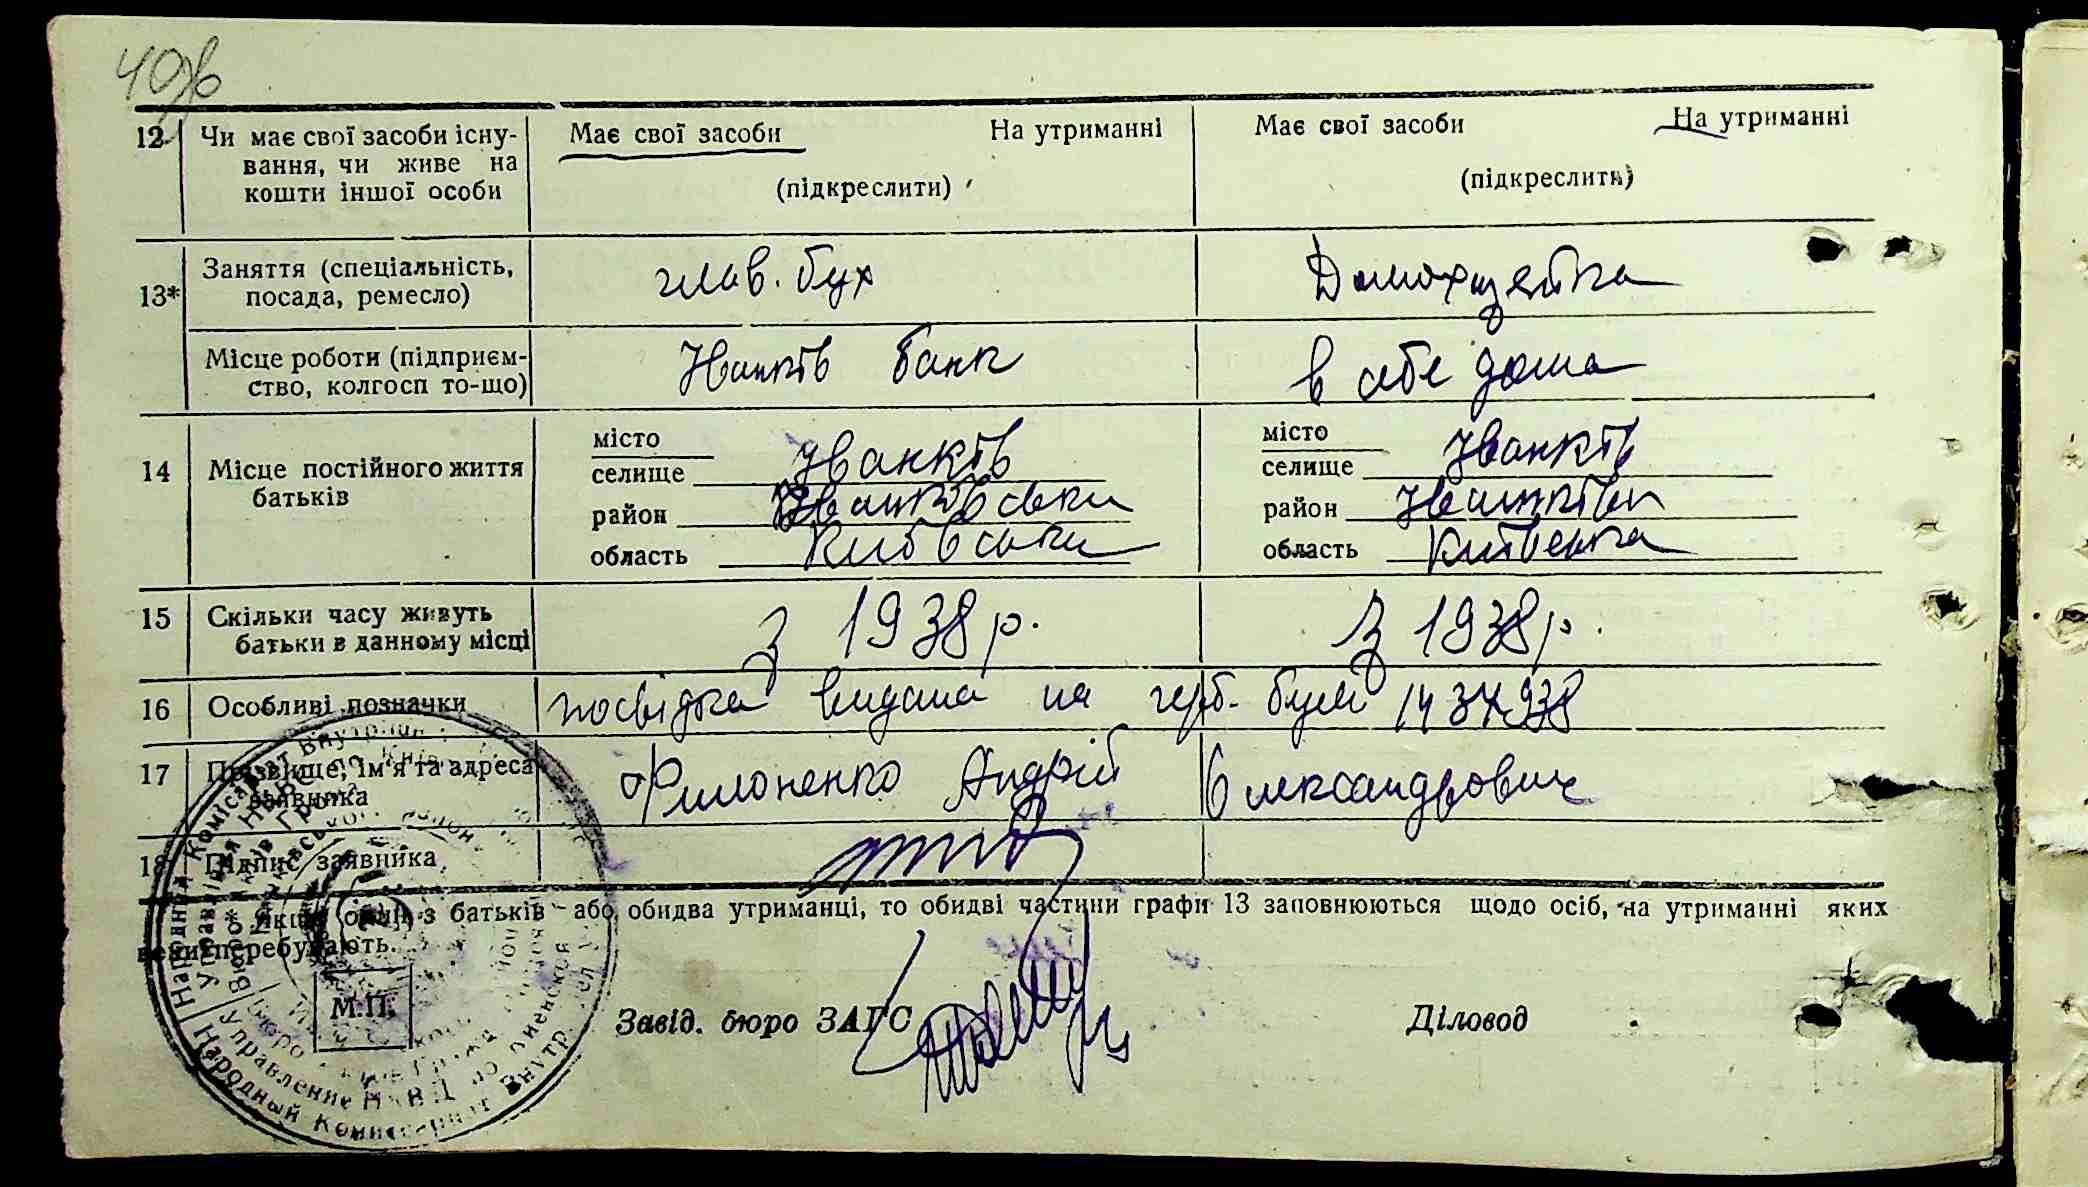 40 зв
12 Чи має свої засоби існу- Має свої засоби На утриманні Має свої засоби На утриманні
вання, чи живе на
кошти іншої особи (підкреслити) (підкреслити)
13* Заняття (спеціальність, глав. бух Домохазяйка
посада, ремесло)
Місце роботи (підприєм- Іванків банк в себе дома
ство, колгосп то-що)
14 Місце постійного життя
батьків
місто
селище Іванків
район Іванківськи
область Київськи
місто
селище Іванків
район Іванків
область Київська
15 Скільки часу живуть З 1938 р. З 1938 р.
батьки в данному місці
16 Особливі позначки посвідка видана на герб. бумі
17 Прізвище, ім'я та адреса Филоненко Андрій Олександрович
заявника
18 Підпис заявника
* Якщо один з батьків або обидва утриманці, то обидві частини графи 13 заповнюються щодо осіб, на утриманні яких
вони перебувають.
М.П.
Завід. бюро ЗАГС Діловод
Народний Комісаріат Внутр.
Управление НКВД по Киевской
Народный Комиссариат Внутр. Дел